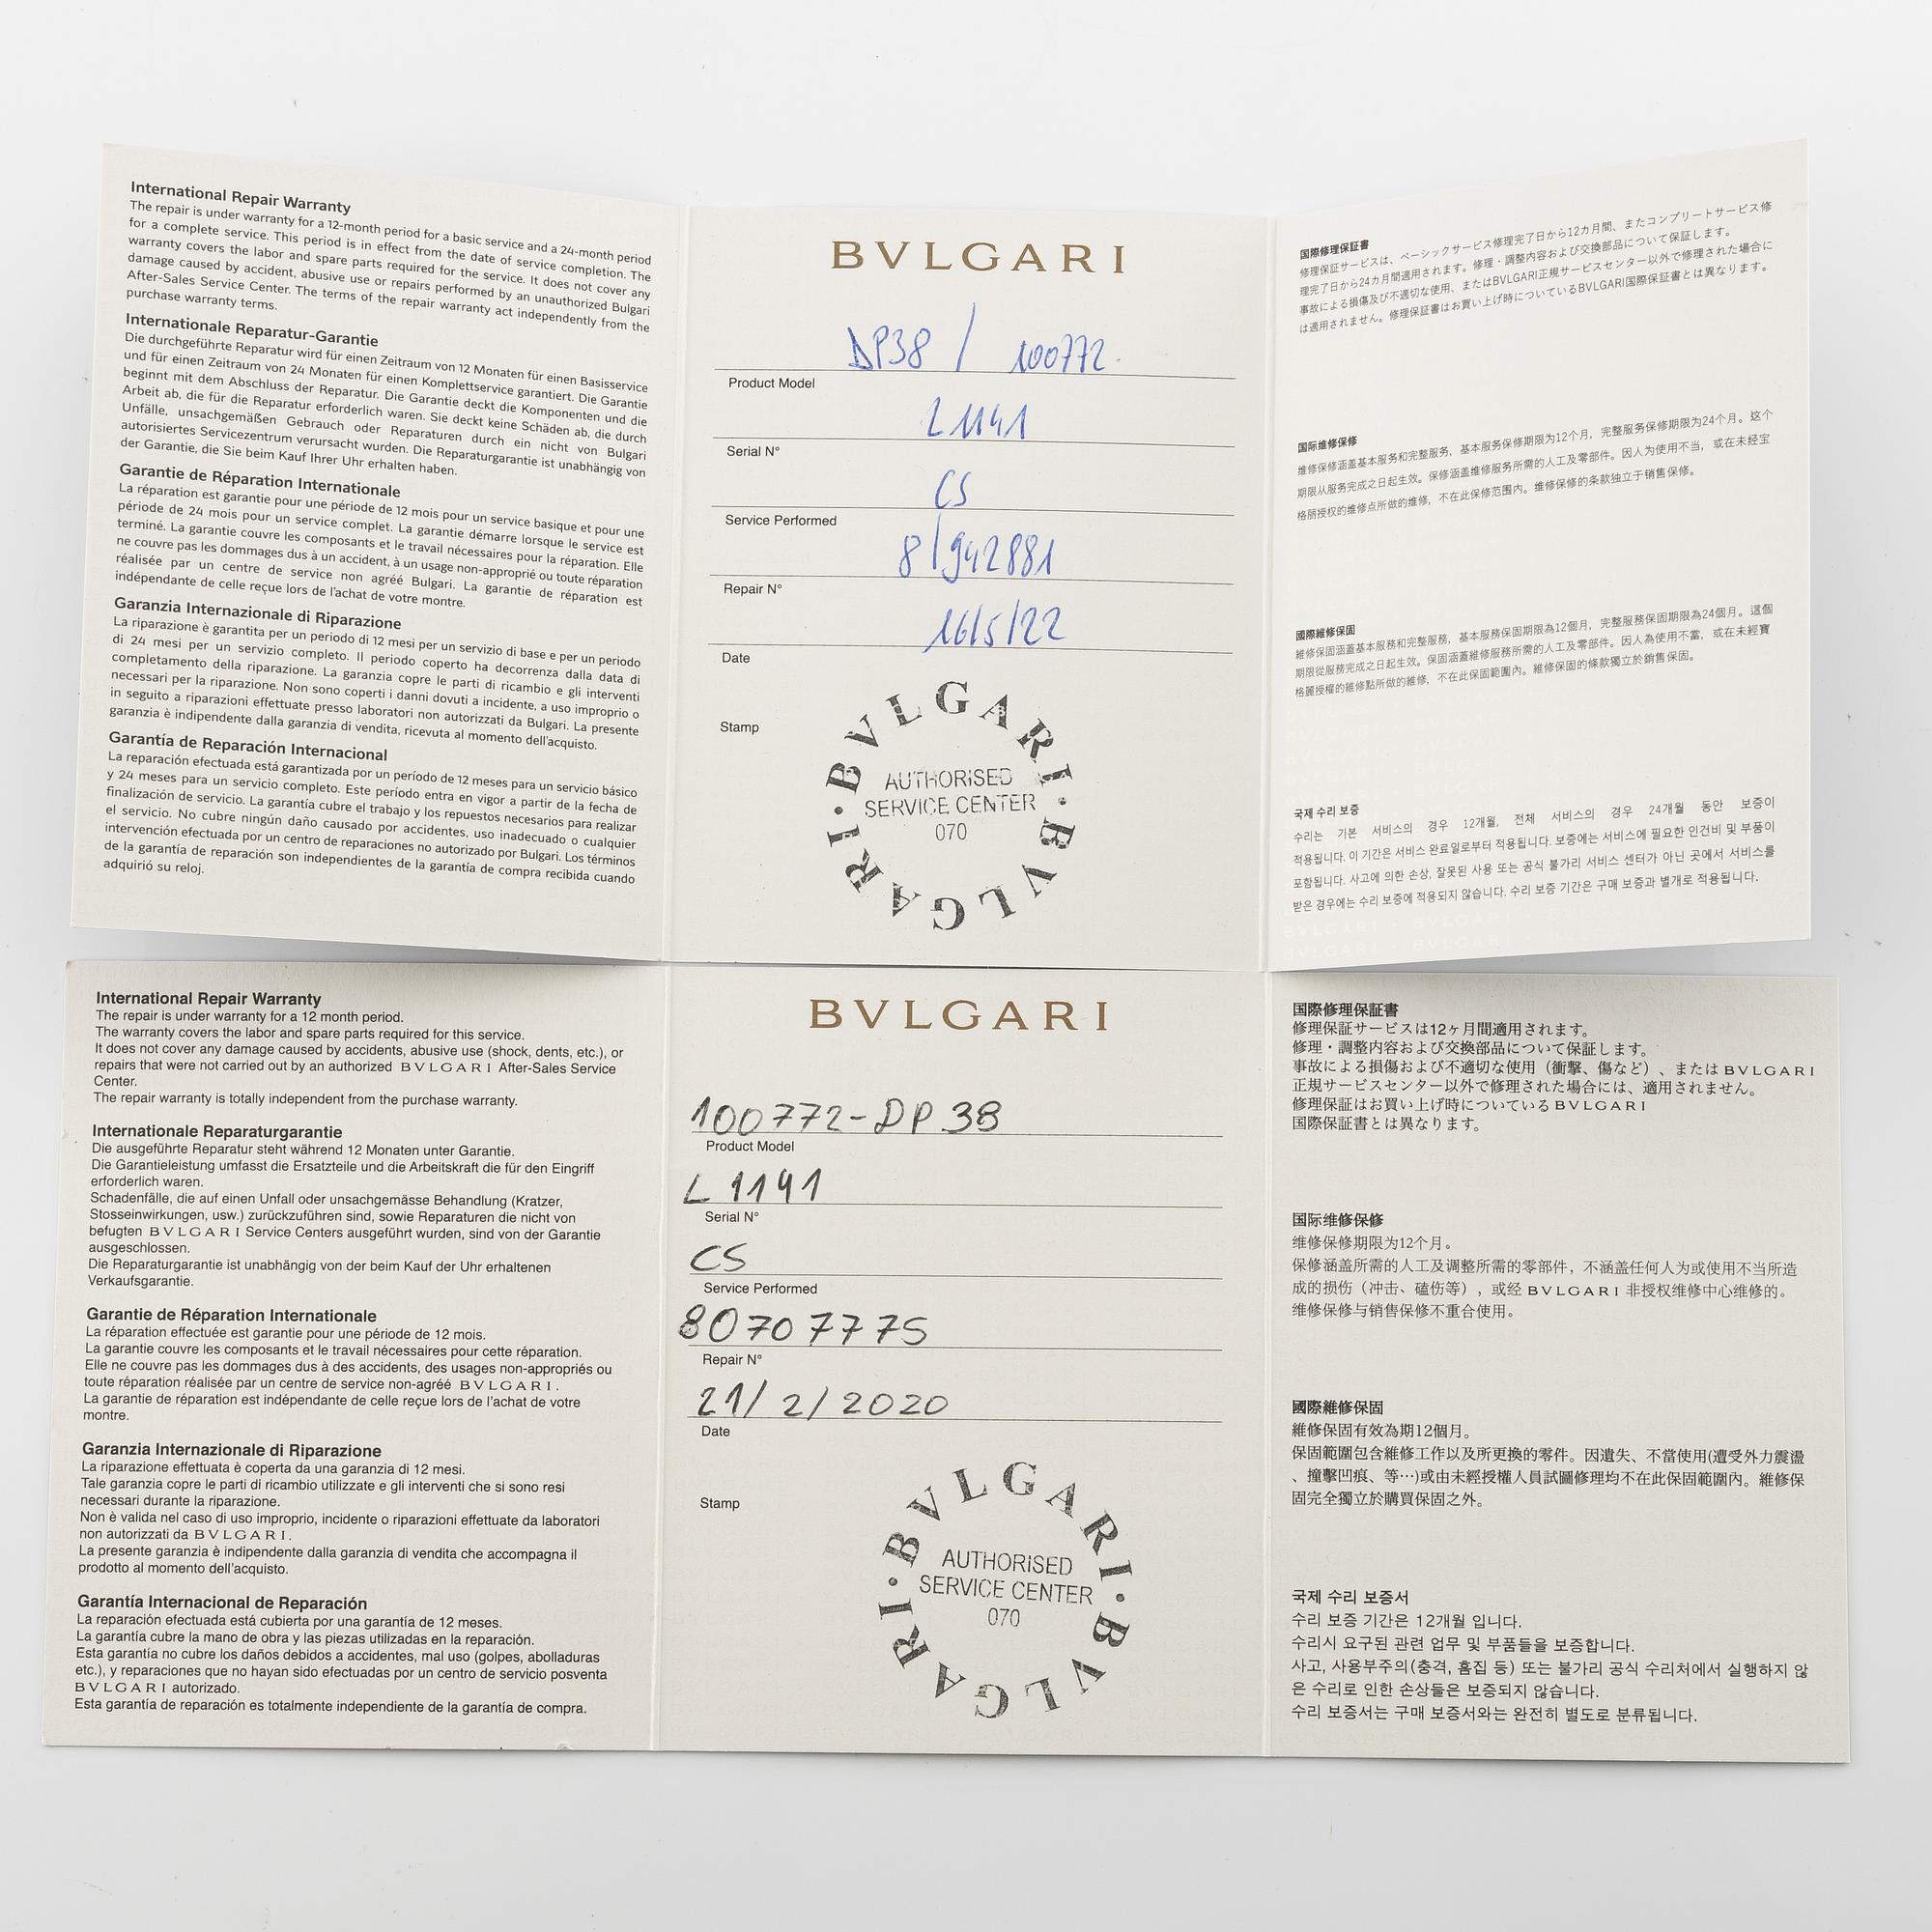 International Repair Warranty
The repair is under warranty for a 12-month period for a basic service and a 24-month period
for a complete service. This period is in effect from the date of service completion. The
warranty covers the labor and spare parts required for the service. It does not cover any
damage caused by accident, abusive use or repairs performed by an unauthorized Bulgari
After-Sales Service Center. The terms of the repair warranty act independently from the
purchase warranty terms.
Internationale Reparatur-Garantie
Die durchgeführte Reparatur wird für einen Zeitraum von 12 Monaten für einen Basisservice
und für einen Zeitraum von 24 Monaten für einen Komplettservice garantiert. Die Garantie
beginnt mit dem Abschluss der Reparatur. Die Garantie deckt die Komponenten und die
Arbeit ab, die für die Reparatur erforderlich waren. Sie deckt keine Schäden ab, die durch
Unfälle, unsachgemäßen Gebrauch oder Reparaturen durch ein nicht von Bulgari
autorisiertes Servicezentrum verursacht wurden. Die Reparaturgarantie ist unabhängig von
der Garantie, die Sie beim Kauf Ihrer Uhr erhalten haben.
Garantie de Réparation Internationale
La réparation est garantie pour une période de 12 mois pour un service basique et pour une
période de 24 mois pour un service complet. La garantie démarre lorsque le service est
terminé. La garantie couvre les composants et le travail nécessaires pour la réparation. Elle
ne couvre pas les dommages dus à un accident, à un usage non-approprié ou toute réparation
réalisée par un centre de service non agréé Bulgari. La garantie de réparation est
indépendante de celle reçue lors de l'achat de votre montre.
Garanzia Internazionale di Riparazione
La riparazione è garantita per un periodo di 12 mesi per un servizio di base e per un periodo
di 24 mesi per un servizio completo. Il periodo coperto ha decorrenza dalla data di
completamento della riparazione. La garanzia copre le parti di ricambio e gli interventi
necessari per la riparazione. Non sono coperti i danni dovuti a incidente, a uso improprio o
in seguito a riparazioni effettuate presso laboratori non autorizzati da Bulgari. La presente
garanzia è indipendente dalla garanzia di vendita, ricevuta al momento dell'acquisto.
Garantía de Reparación Internacional
La reparación efectuada está garantizada por un período de 12 meses para un servicio básico
y 24 meses para un servicio completo. Este período entra en vigor a partir de la fecha de
finalización de servicio. La garantía cubre el trabajo y los repuestos necesarios para realizar
el servicio. No cubre ningún daño causado por accidentes, uso inadecuado o cualquier
intervención efectuada por un centro de reparaciones no autorizado por Bulgari. Los términos
de la garantía de reparación son independientes de la garantía de compra recibida cuando
adquirió su reloj.
BVLGARI
DP38 / 100772
Product Model
L1141
Serial N°
CS
Service Performed
8/942881
Repair N°
16/5/22
Date
Stamp
BVLGARI · BVLGARI ·
AUTHORISED
SERVICE CENTER
070
国際修理保証書
修理保証サービスは、ベーシックサービス修理完了日から12カ月間、またコンプリートサービス修
理完了日から24カ月間適用されます。修理・調整内容および交換部品について保証します。
事故による損傷及び不適切な使用、またはBVLGARI正規サービスセンター以外で修理された場合に
は適用されません。修理保証書はお買い上げ時についているBVLGARI国際保証書とは異なります。
国际维修保修
维修保修涵盖基本服务和完整服务，基本服务保修期限为12个月，完整服务保修期限为24个月。这个
期限从服务完成之日起生效。保修涵盖维修服务所需的人工及零部件。因人为使用不当，或在未经宝
格丽授权的维修点所做的维修，不在此保修范围内。维修保修的条款独立于销售保修。
國際維修保固
維修保固涵蓋基本服務和完整服務，基本服務保固期限為12個月，完整服務保固期限為24個月。這個
期限從服務完成之日起生效。保固涵蓋維修服務所需的人工及零部件。因人為使用不當，或在未經寶
格麗授權的維修點所做的維修，不在此保固範圍內。維修保固的條款獨立於銷售保固。
국제 수리 보증
수리는 기본 서비스의 경우 12개월, 전체 서비스의 경우 24개월 동안 보증이
적용됩니다. 이 기간은 서비스 완료일로부터 적용됩니다. 보증에는 서비스에 필요한 인건비 및 부품이
포함됩니다. 사고에 의한 손상, 잘못된 사용 또는 공식 불가리 서비스 센터가 아닌 곳에서 서비스를
받은 경우에는 수리 보증에 적용되지 않습니다. 수리 보증 기간은 구매 보증과 별개로 적용됩니다.
International Repair Warranty
The repair is under warranty for a 12 month period.
The warranty covers the labor and spare parts required for this service.
It does not cover any damage caused by accidents, abusive use (shock, dents, etc.), or
repairs that were not carried out by an authorized BVLGARI After-Sales Service
Center.
The repair warranty is totally independent from the purchase warranty.
Internationale Reparaturgarantie
Die ausgeführte Reparatur steht während 12 Monaten unter Garantie.
Die Garantieleistung umfasst die Ersatzteile und die Arbeitskraft die für den Eingriff
erforderlich waren.
Schadenfälle, die auf einen Unfall oder unsachgemässe Behandlung (Kratzer,
Stosseinwirkungen, usw.) zurückzuführen sind, sowie Reparaturen die nicht von
befugten BVLGARI Service Centers ausgeführt wurden, sind von der Garantie
ausgeschlossen.
Die Reparaturgarantie ist unabhängig von der beim Kauf der Uhr erhaltenen
Verkaufsgarantie.
Garantie de Réparation Internationale
La réparation effectuée est garantie pour une période de 12 mois.
La garantie couvre les composants et le travail nécessaires pour cette réparation.
Elle ne couvre pas les dommages dus à des accidents, des usages non-appropriés ou
toute réparation réalisée par un centre de service non-agréé BVLGARI.
La garantie de réparation est indépendante de celle reçue lors de l'achat de votre
montre.
Garanzia Internazionale di Riparazione
La riparazione effettuata è coperta da una garanzia di 12 mesi.
Tale garanzia copre le parti di ricambio utilizzate e gli interventi che si sono resi
necessari durante la riparazione.
Non è valida nel caso di uso improprio, incidente o riparazioni effettuate da laboratori
non autorizzati da BVLGARI.
La presente garanzia è indipendente dalla garanzia di vendita che accompagna il
prodotto al momento dell'acquisto.
Garantía Internacional de Reparación
La reparación efectuada está cubierta por una garantía de 12 meses.
La garantía cubre la mano de obra y las piezas utilizadas en la reparación.
Esta garantía no cubre los daños debidos a accidentes, mal uso (golpes, abolladuras
etc.), y reparaciones que no hayan sido efectuadas por un centro de servicio posventa
BVLGARI autorizado.
Esta garantía de reparación es totalmente independiente de la garantía de compra.
BVLGARI
100772-DP38
Product Model
L 1141
Serial N°
CS
Service Performed
80707775
Repair N°
21/2/2020
Date
Stamp
BVLGARI · BVLGARI ·
AUTHORISED
SERVICE CENTER
070
国際修理保証書
修理保証サービスは12ヶ月間適用されます。
修理・調整内容および交換部品について保証します。
事故による損傷および不適切な使用（衝撃、傷など）、またはBVLGARI
正規サービスセンター以外で修理された場合には、適用されません。
修理保証はお買い上げ時についているBVLGARI
国際保証書とは異なります。
国际维修保修
维修保修期限为12个月。
保修涵盖所需的人工及调整所需的零部件，不涵盖任何人为或使用不当所造
成的损伤（冲击、磕伤等），或经 BVLGARI 非授权维修中心维修的。
维修保修与销售保修不重合使用。
國際維修保固
維修保固有效為期12個月。
保固範圍包含維修工作以及所更換的零件。因遺失、不當使用(遭受外力震盪
、撞擊凹痕、等…)或由未經授權人員試圖修理均不在此保固範圍內。維修保
固完全獨立於購買保固之外。
국제 수리 보증서
수리 보증 기간은 12개월 입니다.
수리시 요구된 관련 업무 및 부품들을 보증합니다.
사고, 사용부주의(충격, 흠집 등) 또는 불가리 공식 수리처에서 실행하지 않
은 수리로 인한 손상들은 보증되지 않습니다.
수리 보증서는 구매 보증서와는 완전히 별도로 분류됩니다.